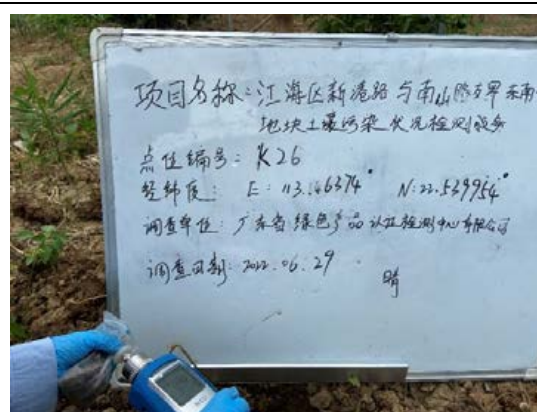 项目名称:江海区新港路与南山路交界东南
地块土壤污染状况检测服务
点位编号:K26
经纬度: E:113.146374° N:22.539954°
调查单位:广东省绿色产品认证检测中心有限公司
调查日期:2022.06.29 晴